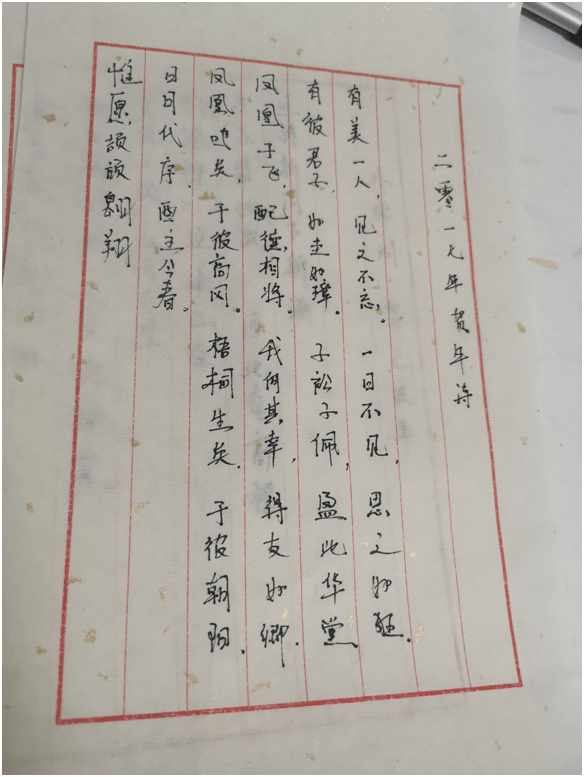 二零一七年贺年诗
有美一人，见之不忘。一日不见，思之如狂.
有彼君子，如圭如璋。子衿子佩，盈此华堂
凤凰于飞，配德相将。我何其幸，得友如卿.
凤凰鸣矣，于彼高冈。梧桐生矣，于彼朝阳.
日月代序，酉主今春。
惟愿颉颃翱翔